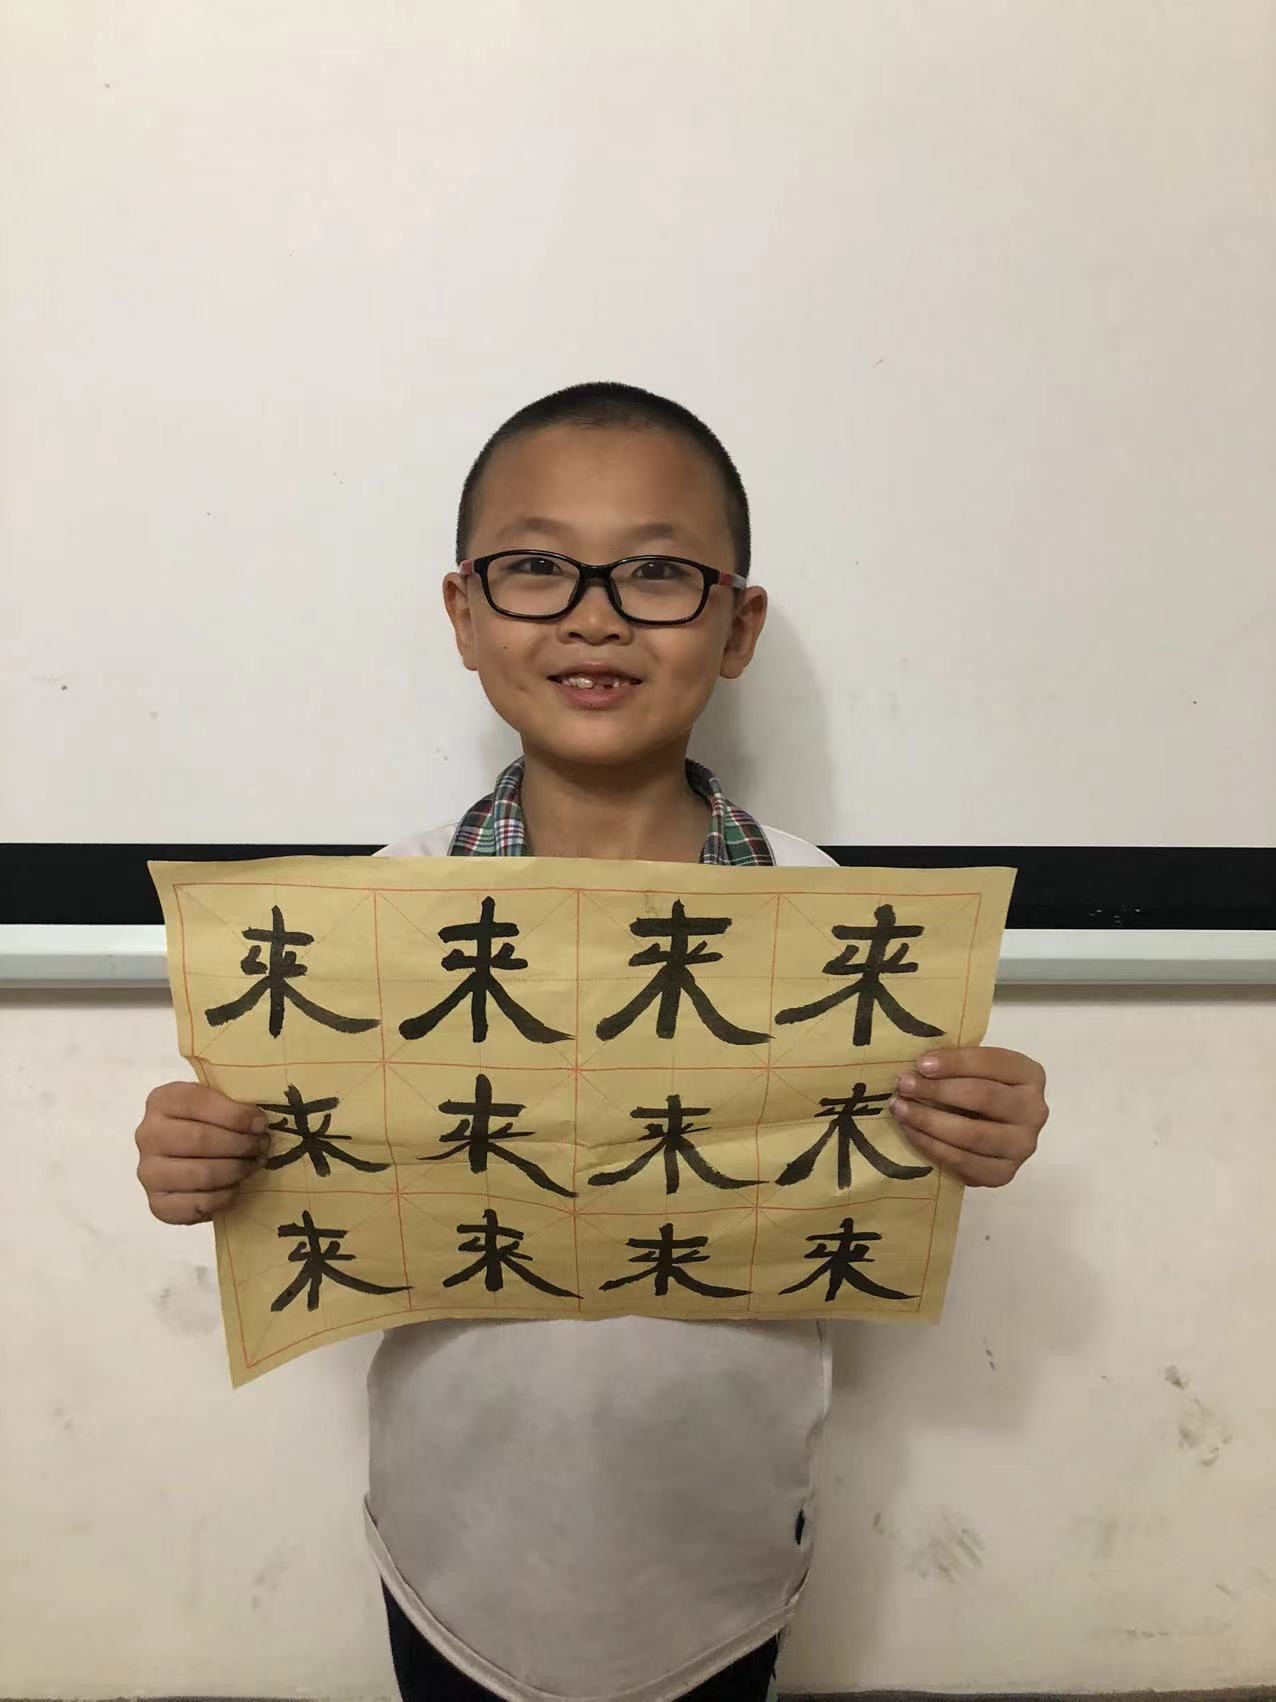 来来来来
来来来来
来来来来